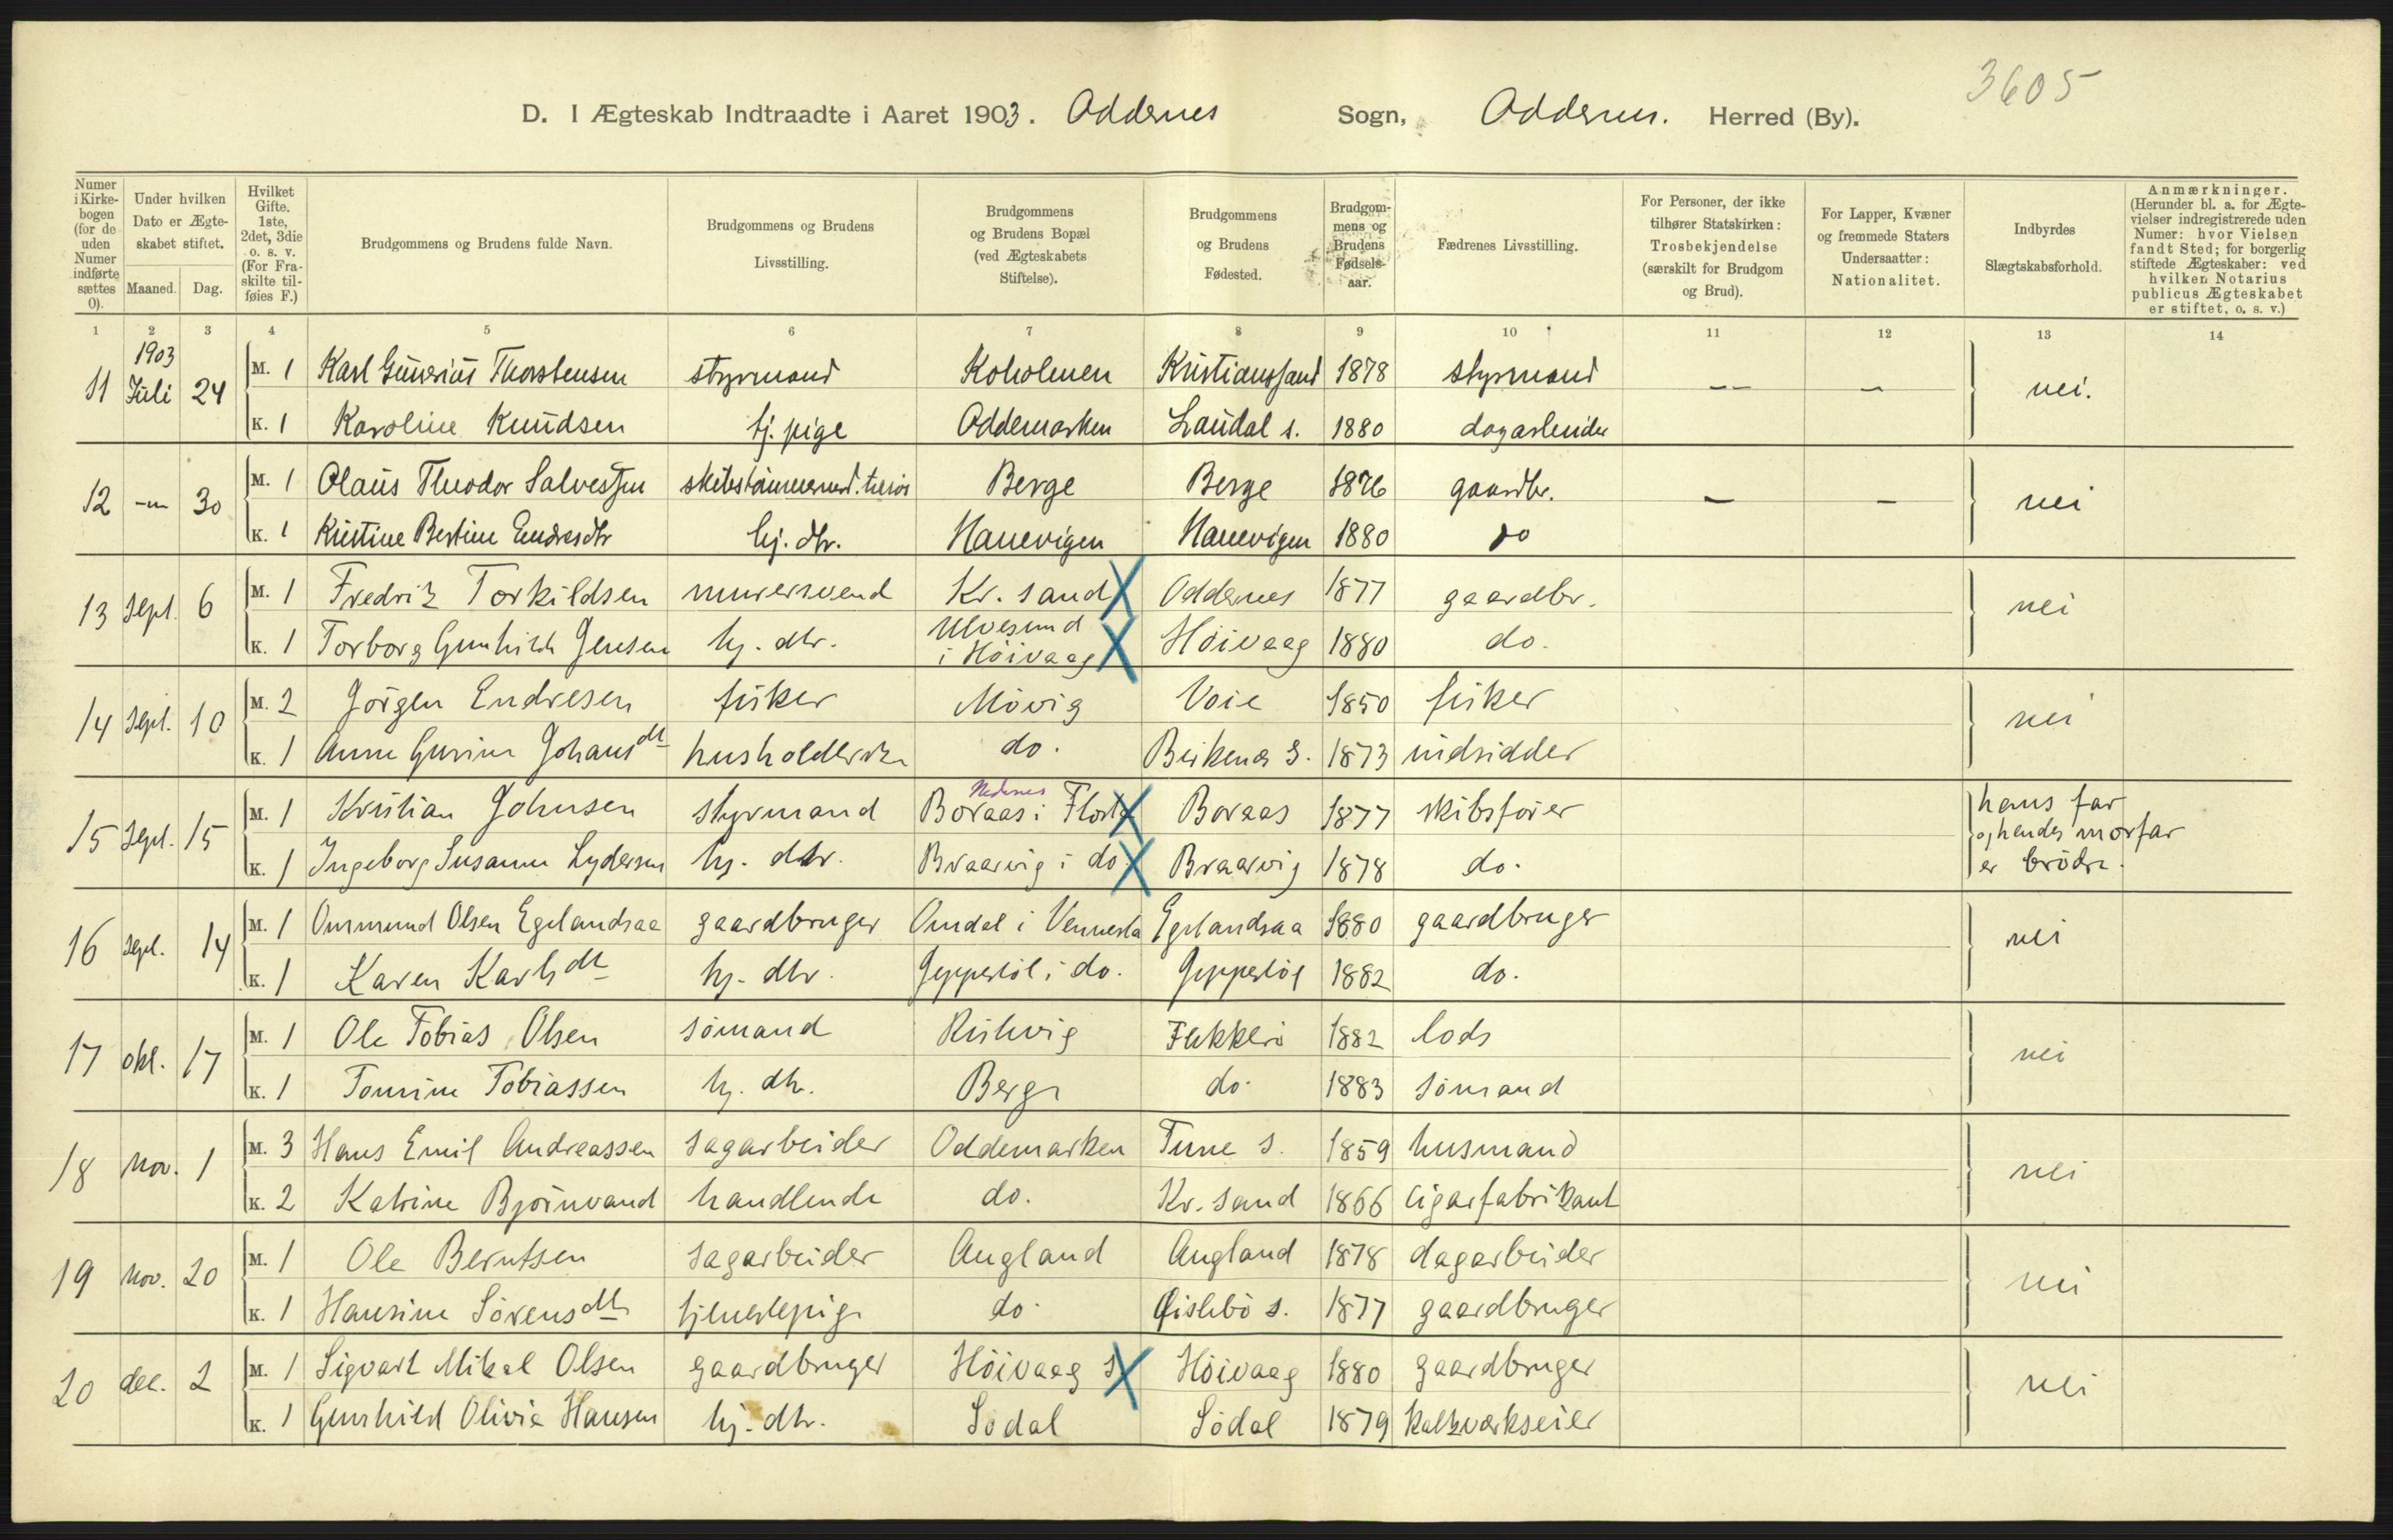 3605
D. I Ægteskab Indtraadte i Aaret 1903. Oddernes Sogn, Oddernes. Herred (By).
Numer i Kirkebogen (for de uden Numer indførte sættes 0).
Under hvilken Dato er Ægteskabet stiftet.
Maaned. Dag.
Hvilket Gifte. 1ste, 2det, 3die o. s. v. (For Fraskilte tilføies F.)
Brudgommens og Brudens fulde Navn.
Brudgommens og Brudens Livsstilling.
Brudgommens og Brudens Bopæl (ved Ægteskabets Stiftelse).
Brudgommens og Brudens Fødested.
Brudgommens og Brudens Fødselsaar.
Fædrenes Livsstilling.
For Personer, der ikke tilhører Statskirken: Trosbekjendelse (særskilt for Brudgom og Brud).
For Lapper, Kvæner og fremmede Staters Undersaatter: Nationalitet.
Indbyrdes Slægtskabsforhold.
Anmærkninger. (Herunder bl. a. for Ægtevielser indregistrerede uden Numer: hvor Vielsen fandt Sted; for borgerlig stiftede Ægteskaber: ved hvilken Notarius publicus Ægteskabet er stiftet, o. s. v.)
1 2 3 4 5 6 7 8 9 10 11 12 13 14
1903
11 Juli 24 M. 1 Karl Gunerius Thorstensen styrmand Koholmen Kristianssand 1878 styrmand -- - nei.
K. 1 Karoline Knudsen tj. pige Oddemarken Laudal s. 1880 dagarbeider
12 -"- 30 M. 1 Olaus Theodor Salvesen Berge Berge 1876 gaardbr. - - nei
K. 1 Kristine Bertine Endresdtr hj. dtr. Hanevigen Hanevigen 1880 do
13 Sept. 6 M. 1 Fredrik Torkildsen murersvend Kr. sand X Oddernes 1877 gaardbr. nei
K. 1 Torborg Gunhild Jensen hj. dtr. Ulvesund i Höivaag X Höivaag 1880 do.
14 Sept. 10 M. 2 Jörgen Endresen fisker Mövig Voie 1850 fisker nei
K. 1 Anne Gurine Johansdt husholderske do. Birkenes S. 1873 indsidder
15 Sept. 15 M. 1 Kristian Johnsen styrmand Nedenes Boraas i Flosta X Boraas 1877 skibsförer hans far
og hendes morfar
K. 1 Ingeborg Susanne Lydersen hj. dtr. Braarvig i do. X Braarvig 1878 do. er brödre.
16 Sept. 14 M. 1 Ommund Olsen Egelandsaa gaardbruger Omdal i Vennesla Egelandsaa 1880 gaardbruger nei
K. 1 Karen Karlsdt hj. dtr. Jeppestöl i do. Jeppestöl 1882 do.
17 okt. 17 M. 1 Ole Tobias Olsen sömand Flekkerö 1882 lods nei
K. 1 Tomine Tobiassen hj. dtr. Berge do. 1883 sömand
18 nov. 1 M. 3 Hans Emil Andreassen sagarbeider Oddemarken Tune s. 1859 husmand nei
K. 2 Katrine Björnvand handlende do. Kr. sand 1866 cigarfabrikant
19 nov. 20 M. 1 Ole Berntsen sagarbeider Augland Augland 1878 dagarbeider nei
K. 1 Hansine Sörensdtr tjenestepige do. Öislebö s. 1877 gaardbruger
20 dec. 2 M. 1 Sigvart Mikal Olsen gaardbruger Höivaag s X Höivaag 1880 gaardbruger nei
K. 1 Gunhild Olivia Hansen hj. dtr. Södal Södal 1879 kalkværkseier